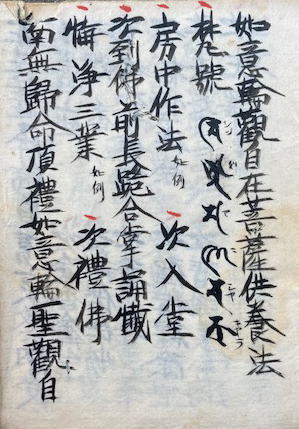 如意輪觀自在菩薩供養法
梵號
房中作法如例 次入堂
次到佛前長跪合掌誦懺
悔淨三業如例 次禮佛
南無歸命頂禮如意輪聖觀自